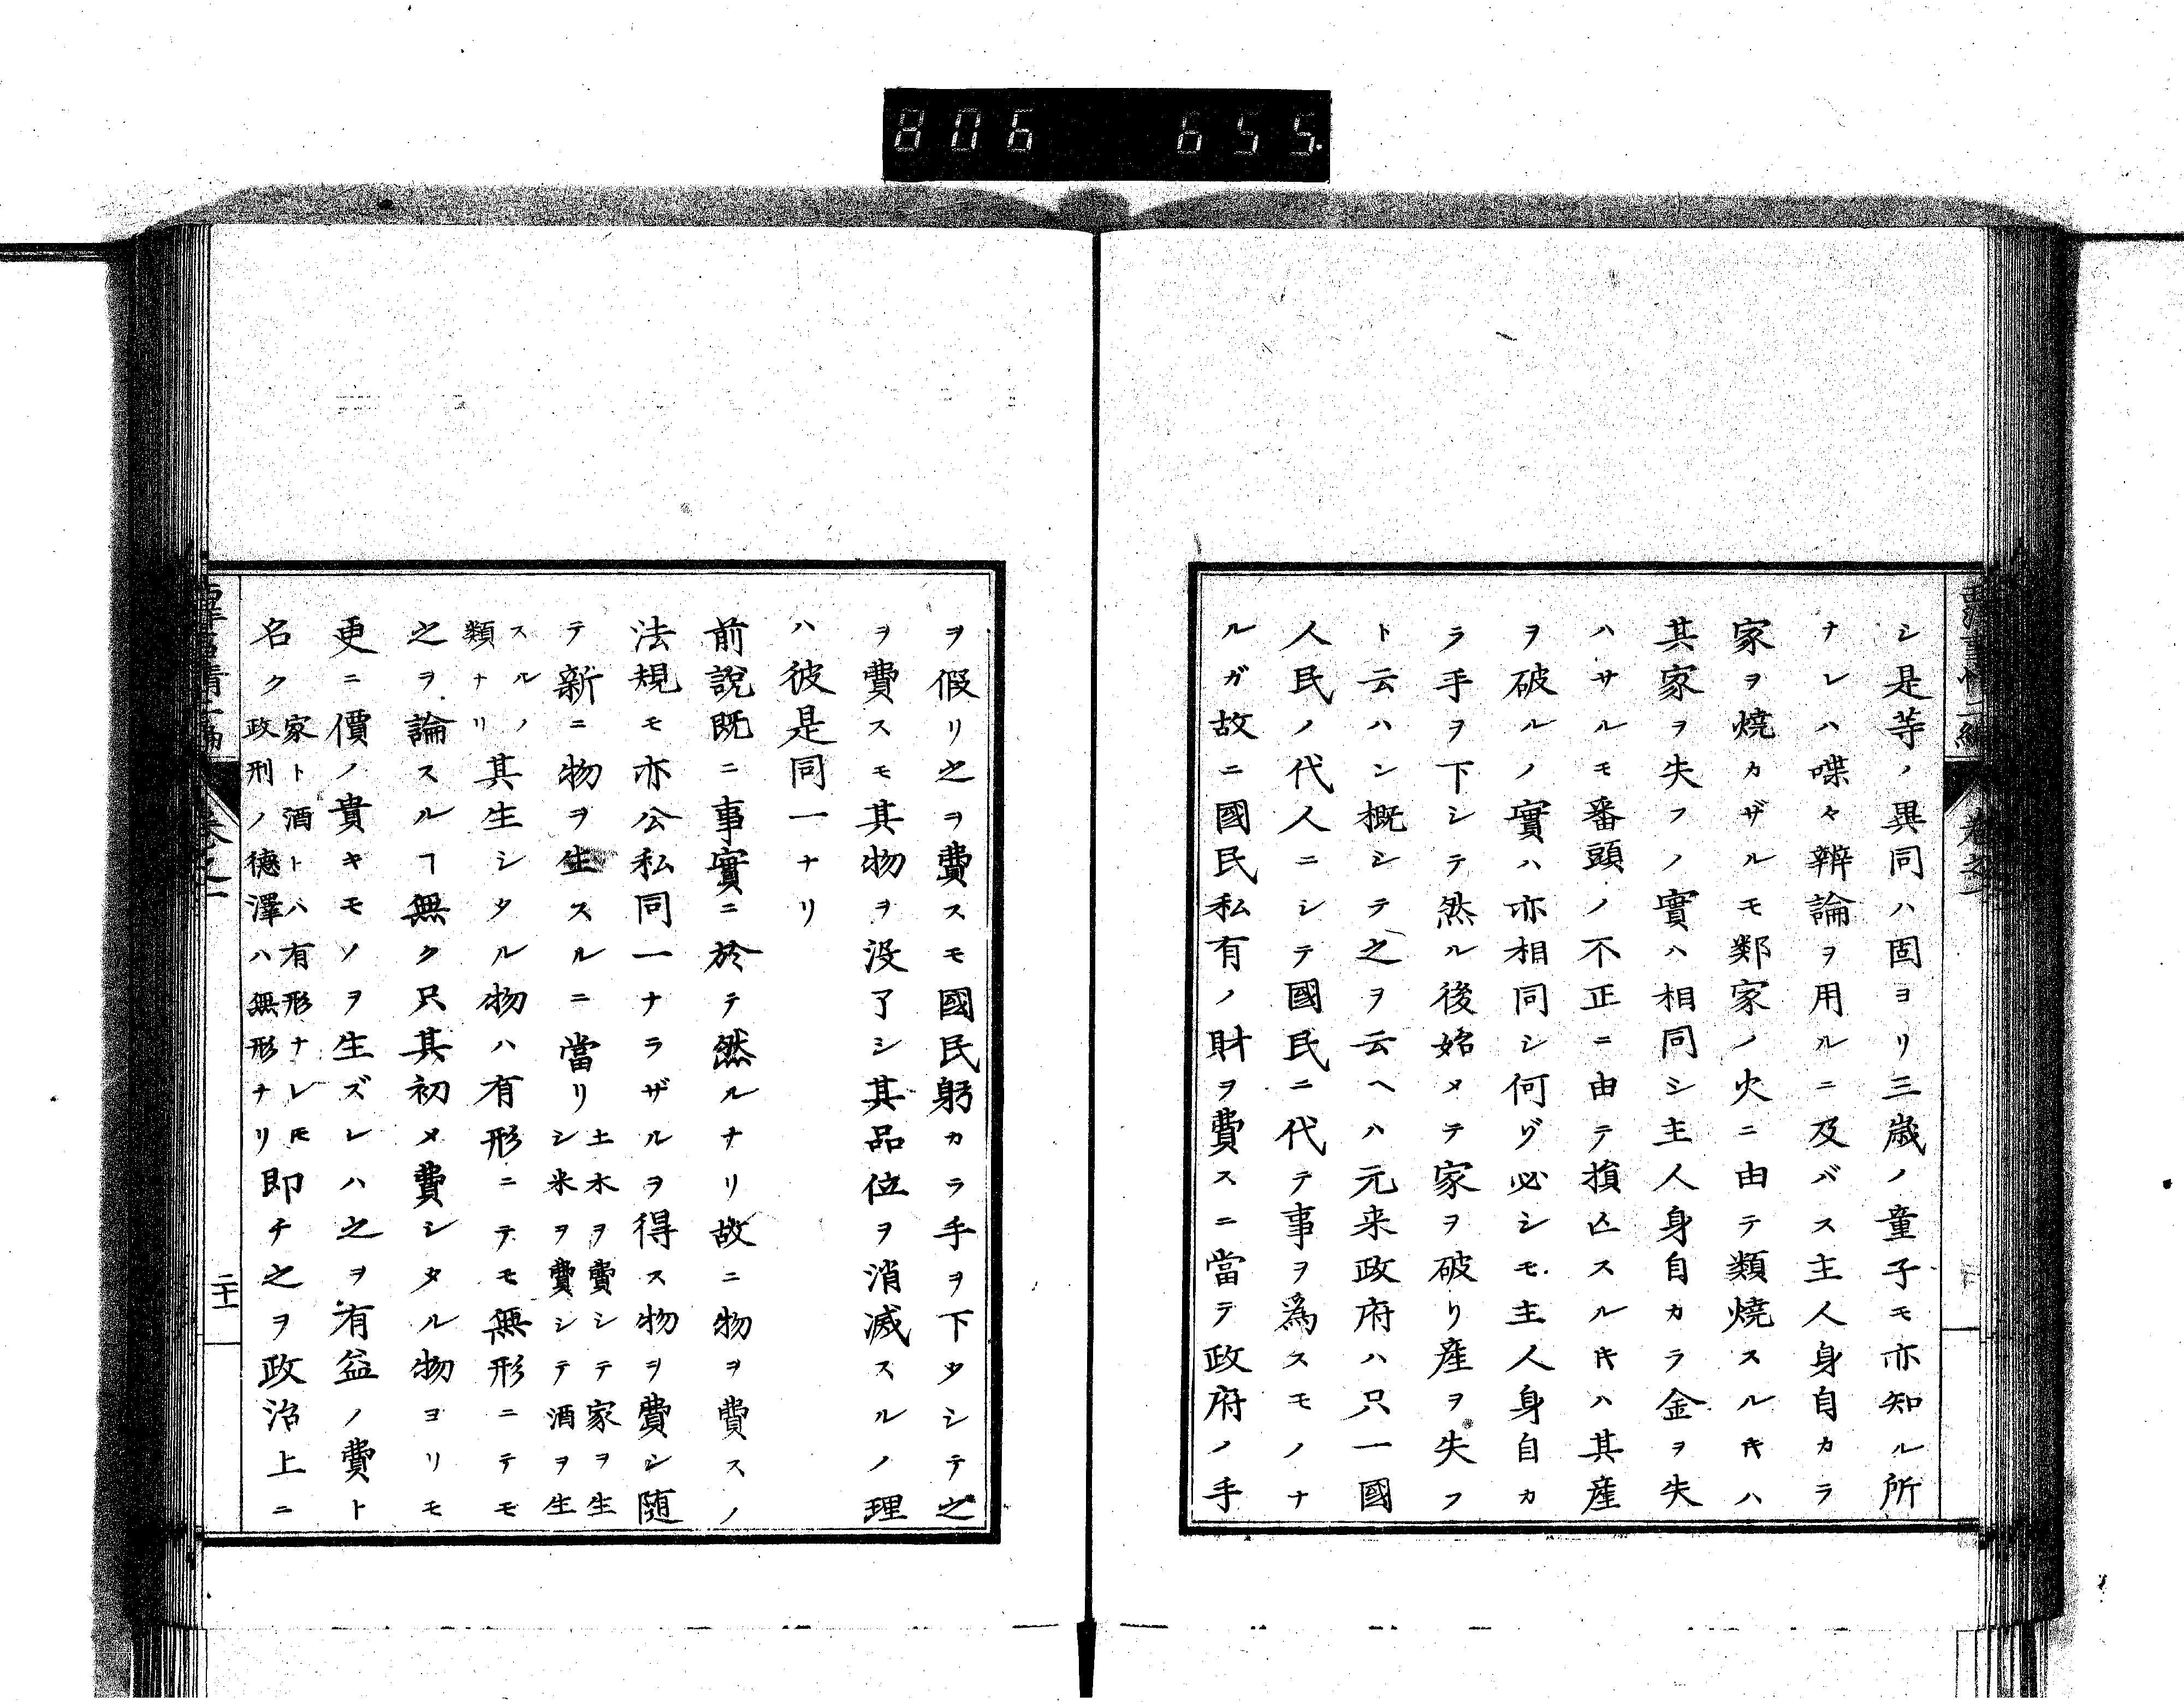 806 655
シ是等ノ異同ハ固ヨリ三歳ノ童子モ亦知ル所
ナレハ喋々辨論ヲ用ルニ及バス主人身自カラ
家ヲ燒カザルモ鄰家ノ火ニ由テ類燒スルキハ
其家ヲ失フノ實ハ相同シ主人身自カラ金ヲ失
ハサルモ番頭ノ不正ニ由テ損亡スルキハ其産
ヲ破ルノ實ハ亦相同シ何ゾ必シモ主人身自カ
ラ手ヲ下シテ然ル後始メテ家ヲ破リ産ヲ失フ
ト云ハン概シテ之ヲ云ヘハ元来政府ハ只一國
人民ノ代人ニシテ國民ニ代テ事ヲ為スモノナ
ルガ故ニ國民私有ノ財ヲ費スニ當テ政府ノ手
ヲ假リ之ヲ費スモ國民躬カラ手ヲ下タシテ之
ヲ費スモ其物ヲ没了シ其品位ヲ消滅スルノ理
ハ彼是同一ナリ
前説既ニ事實ニ於テ然ルナリ故ニ物ヲ費スノ
法規モ亦公私同一ナラザルヲ得ス物ヲ費シ随
テ新ニ物ヲ生スルニ當リ土木ヲ費シテ家ヲ生
シ米ヲ費シテ酒ヲ生
スルノ
類ナリ其生シタル物ハ有形ニテモ無形ニテモ
之ヲ論スルヿ無ク只其初メ費シタル物ヨリモ
更ニ價ノ貴キモノヲ生ズレハ之ヲ有益ノ費ト
名ク家ト酒トハ有形ナレ𪜈
政刑ノ德澤ハ無形ナリ即チ之ヲ政治上ニ
二十一